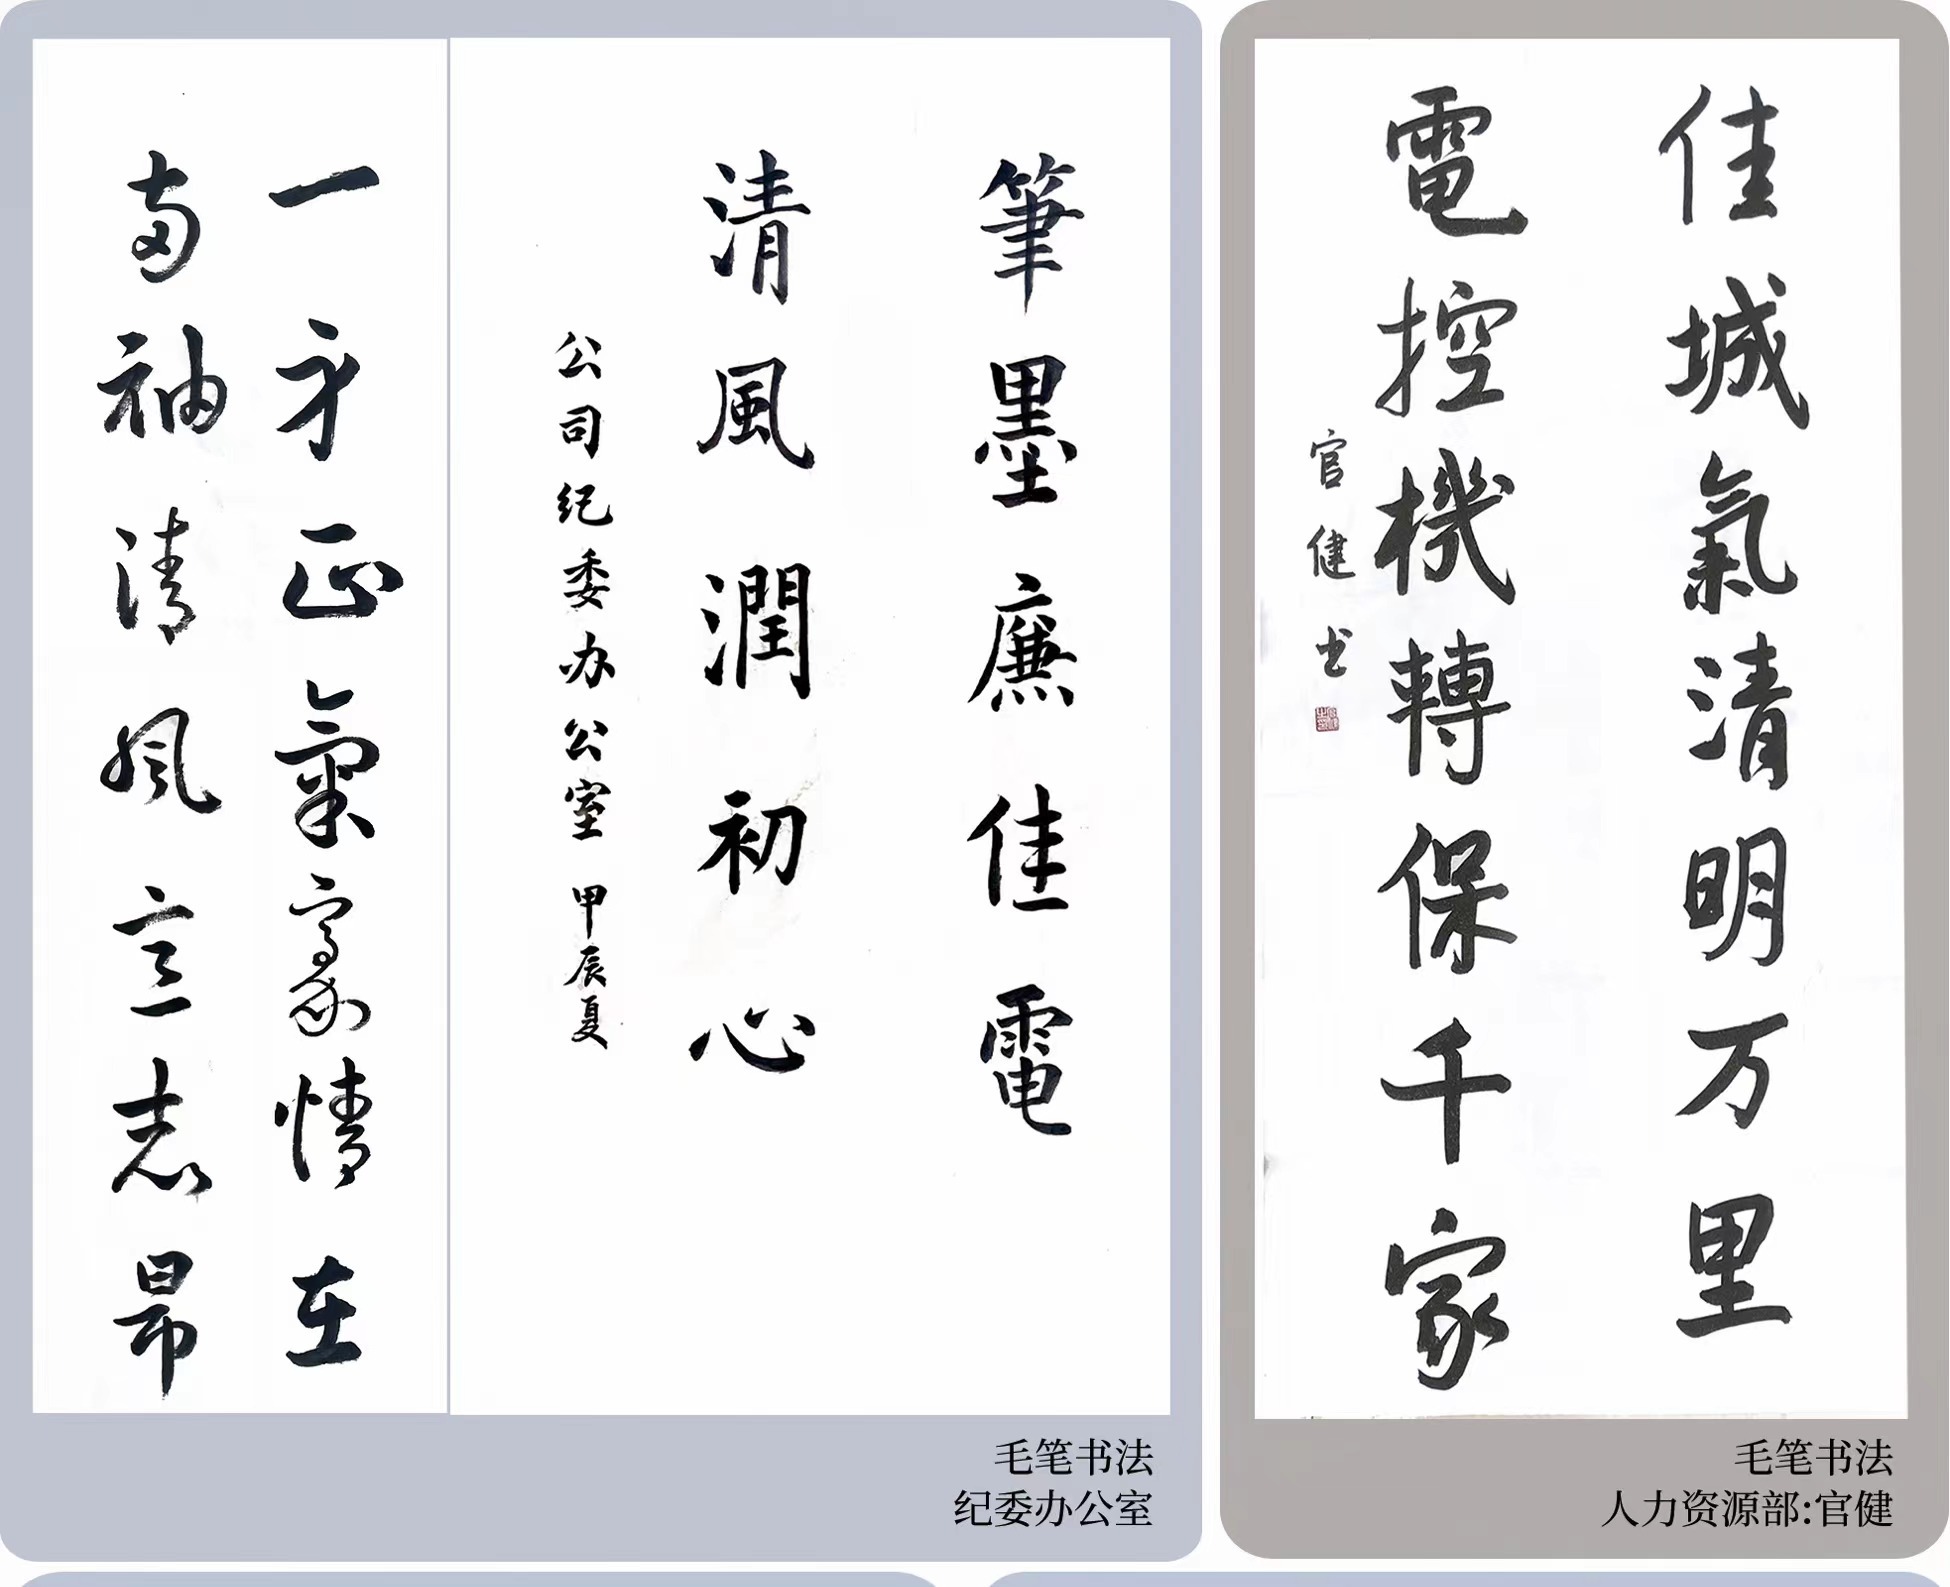 筆墨廉佳電
清風潤初心
公司纪委办公室 甲辰夏
一身正氣豪情在
両袖清风意志昂
毛笔书法
纪委办公室
佳城氣清明万里
電控機轉保千家
官健书
毛笔书法
人力资源部:官健